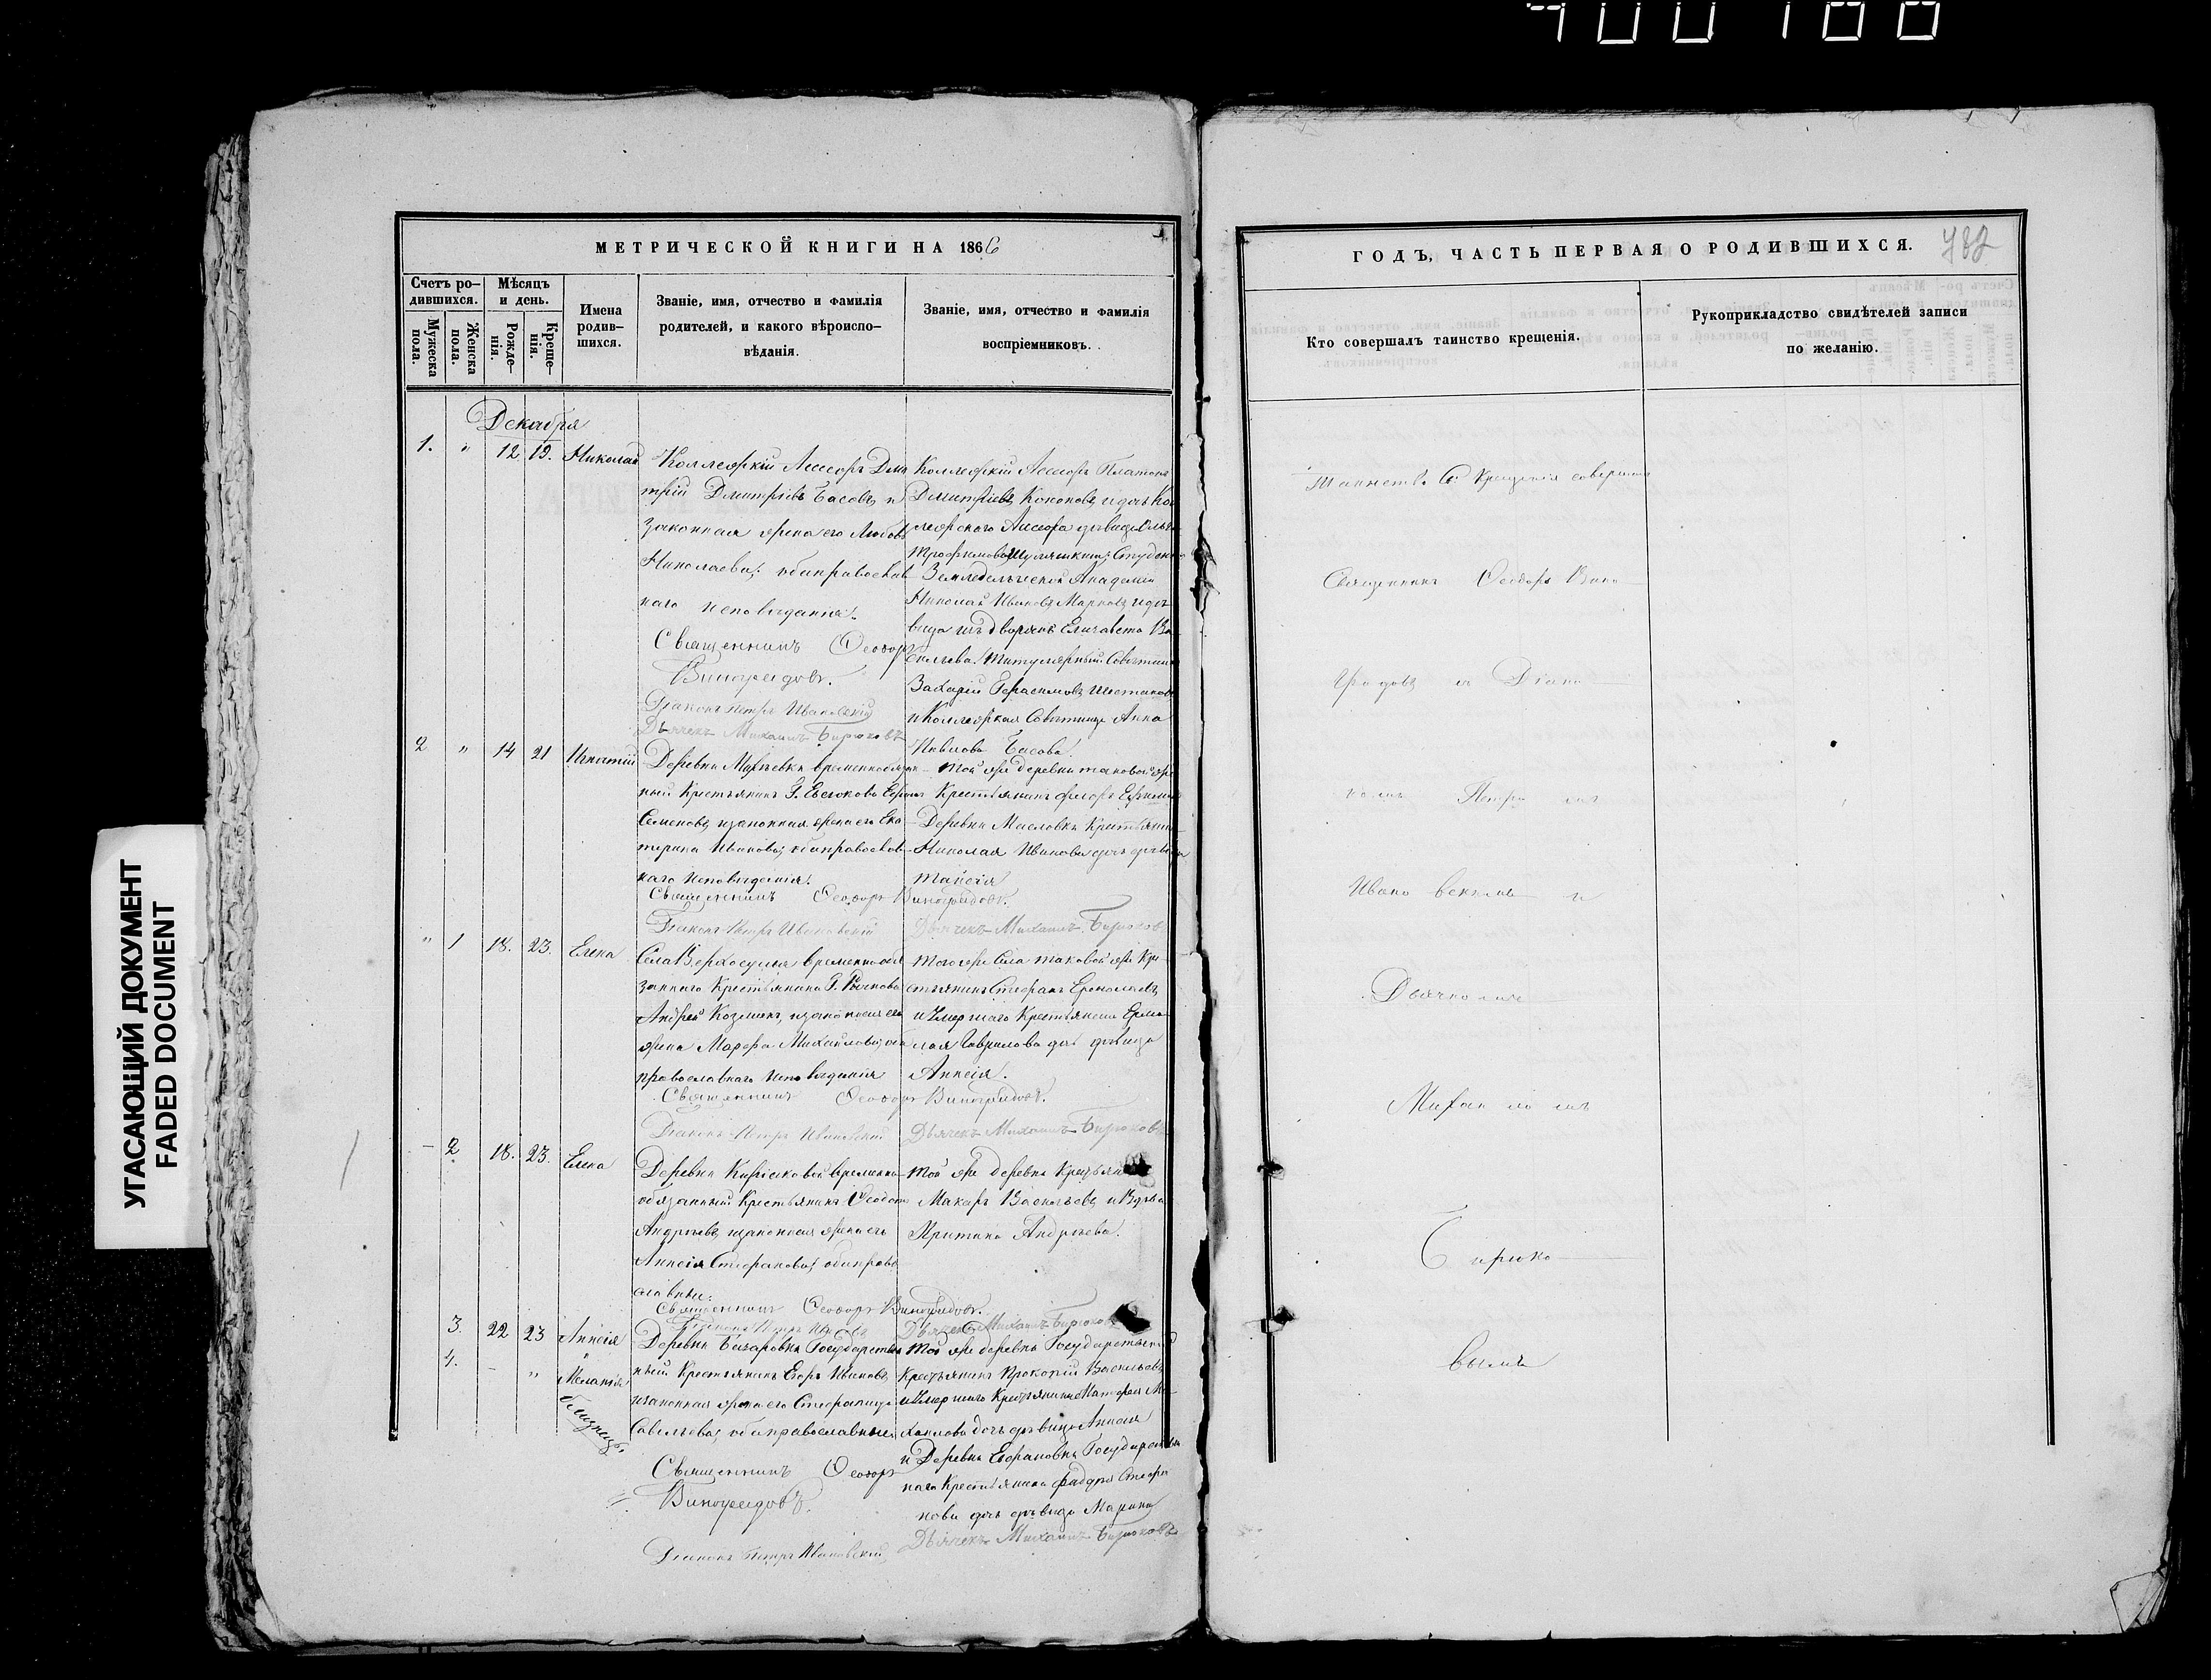 400188
УГАСАЮЩИЙ ДОКУМЕНТ
FADED DOCUMENT
МЕТРИЧЕСКОЙ КНИГИ НА 1866
Счетъ ро-
дившихся.
Мужеска пола.
Женска пола.
Мѣсяцъ
и день.
Рожде-
нія.
Креще-
нія.
Имена
родив-
шихся.
Званіе, имя, отчество и фамилія
родителей, и какого вѣроиспо-
вѣданія.
Званіе, имя, отчество и фамилія
воспріемниковъ.
Декабря
1. " 12 19. Николай
Коллежскій Ассесоръ Дми
трій Дмитріевъ Басовъ и
законная жена его Любовь
Николаева; оба православ
наго исповѣданія.
Священникъ Ѳеодоръ
Виноградовъ.
Діаконъ Петръ Ивановскій
Дьячекъ Михаилъ Бирюковъ
Коллежскій Ассесоръ Платонъ
Дмитріевъ и дочь Кол
лежскаго Ассесора дѣвица Ольга
Трофимова Студентъ
Земледѣльческой Академіи
Николай Ивановъ Марковъ и дѣ
вица изъ дворянъ Елизавета Ва
сильева. Титулярный Совѣтникъ
Захарій Герасимовъ Шестаковъ
и Коллежская Совѣтница Анна
Павлова Басова
2 " 14 21 Игнатій
Деревни временнообязан
ный Крестьянинъ Г. Ефимъ
Семеновъ и законная жена его Ека
терина Иванова; оба православ
наго исповѣданія.
Священникъ Ѳеодоръ Виноградовъ.
Діаконъ Петръ Ивановскій Дьячекъ Михаилъ Бирюковъ
Той же деревни таковой же
Крестьянинъ Ефимовъ
Деревни Масловки Крестьянина
Николая Иванова дочь дѣвица
Таисія
" 1 18. 23. Елена
Села Верхосунья временнообя
заннаго Крестьянина Г.
Андрей Козминъ, и законная его
жена Марфа Михайлова; оба
православнаго исповѣданія
Священникъ Ѳеодоръ Виноградовъ.
Діаконъ Петръ Ивановскій Дьячекъ Михаилъ Бирюковъ
Того же Села таковой же Кре
стьянинъ Стефанъ Ермолаевъ
и Умершаго Крестьянина Ермо
лая Гаврилова дочь дѣвица
Анисія.
– 2 18. 23. Елена
Деревни временно
обязанный Крестьянинъ Ѳеодотъ
Андреевъ и законная жена его
Анисія Стефанова; оба право
славные.
Священникъ Ѳеодоръ Виноградовъ.
Діаконъ Петръ Дьячекъ Михаилъ Бирюковъ
Той же деревни Крестьянинъ
Макаръ Васильевъ и Вдова
Андреева.
3. 22 23 Анисія
4. – " Меланія
близнецы
Деревни Государствен
ный Крестьянинъ Егоръ Ивановъ
и законная жена его Стефанида
Савельева; оба православные.
Священникъ Ѳеодоръ
Виноградовъ.
Діаконъ Петръ Ивановскій
Той же деревни Государственный
Крестьянинъ Прокопій Васильевъ
и Умершаго Крестьянина Ми
хаилова дочь дѣвица Анисія
и Деревни Государствен
наго Крестьянина Стефа
нова дочь дѣвица Марина
Дьячекъ Михаилъ Бирюковъ
ГОДЪ, ЧАСТЬ ПЕРВАЯ О РОДИВШИХСЯ.
782
Кто совершалъ таинство крещенія.
Рукоприкладство свидѣтелей записи
по желанію.
Таинство Св. Крещенія совершалъ
Священникъ Ѳеодоръ Вино
градовъ съ Діако
номъ Петромъ
Ивановскимъ и
Дьячкомъ
Михаиломъ
Бирюко
вымъ